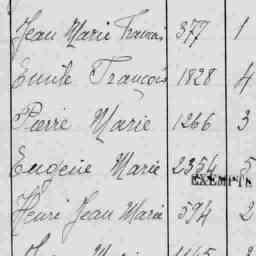 Jean Marie Francois 377 1
Emile François 1828 4
Pierre Marie 1266 3
Eugene Marie 2354 5
EXEMPTÉ
Henri Jean Marie 594 2
Marie 1165